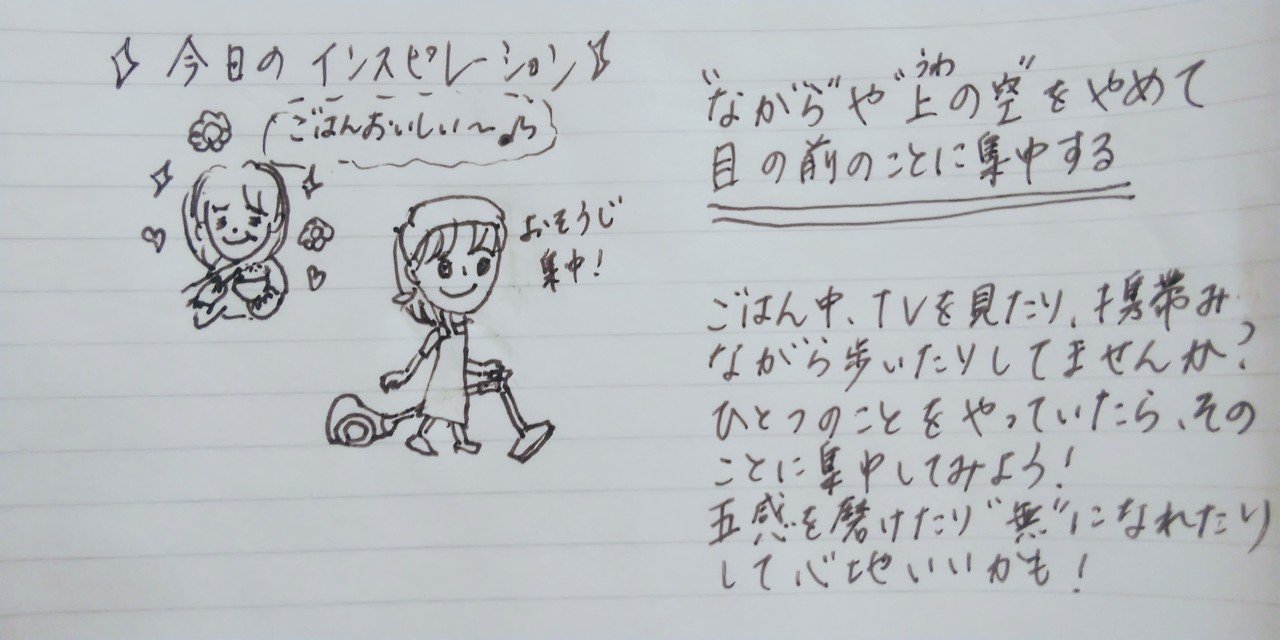 今日のインスピレーション
ごはんおいしい〜♪
おそうじ
集中!
"ながら"や"上の空"をやめて
うわ
目の前のことに集中する
ごはん中、TVを見たり、携帯み
ながら歩いたりしてませんか?
ひとつのことをやっていたら、その
ことに集中してみよう!
五感を磨けたり"無"になれたり
して心地いいかも!